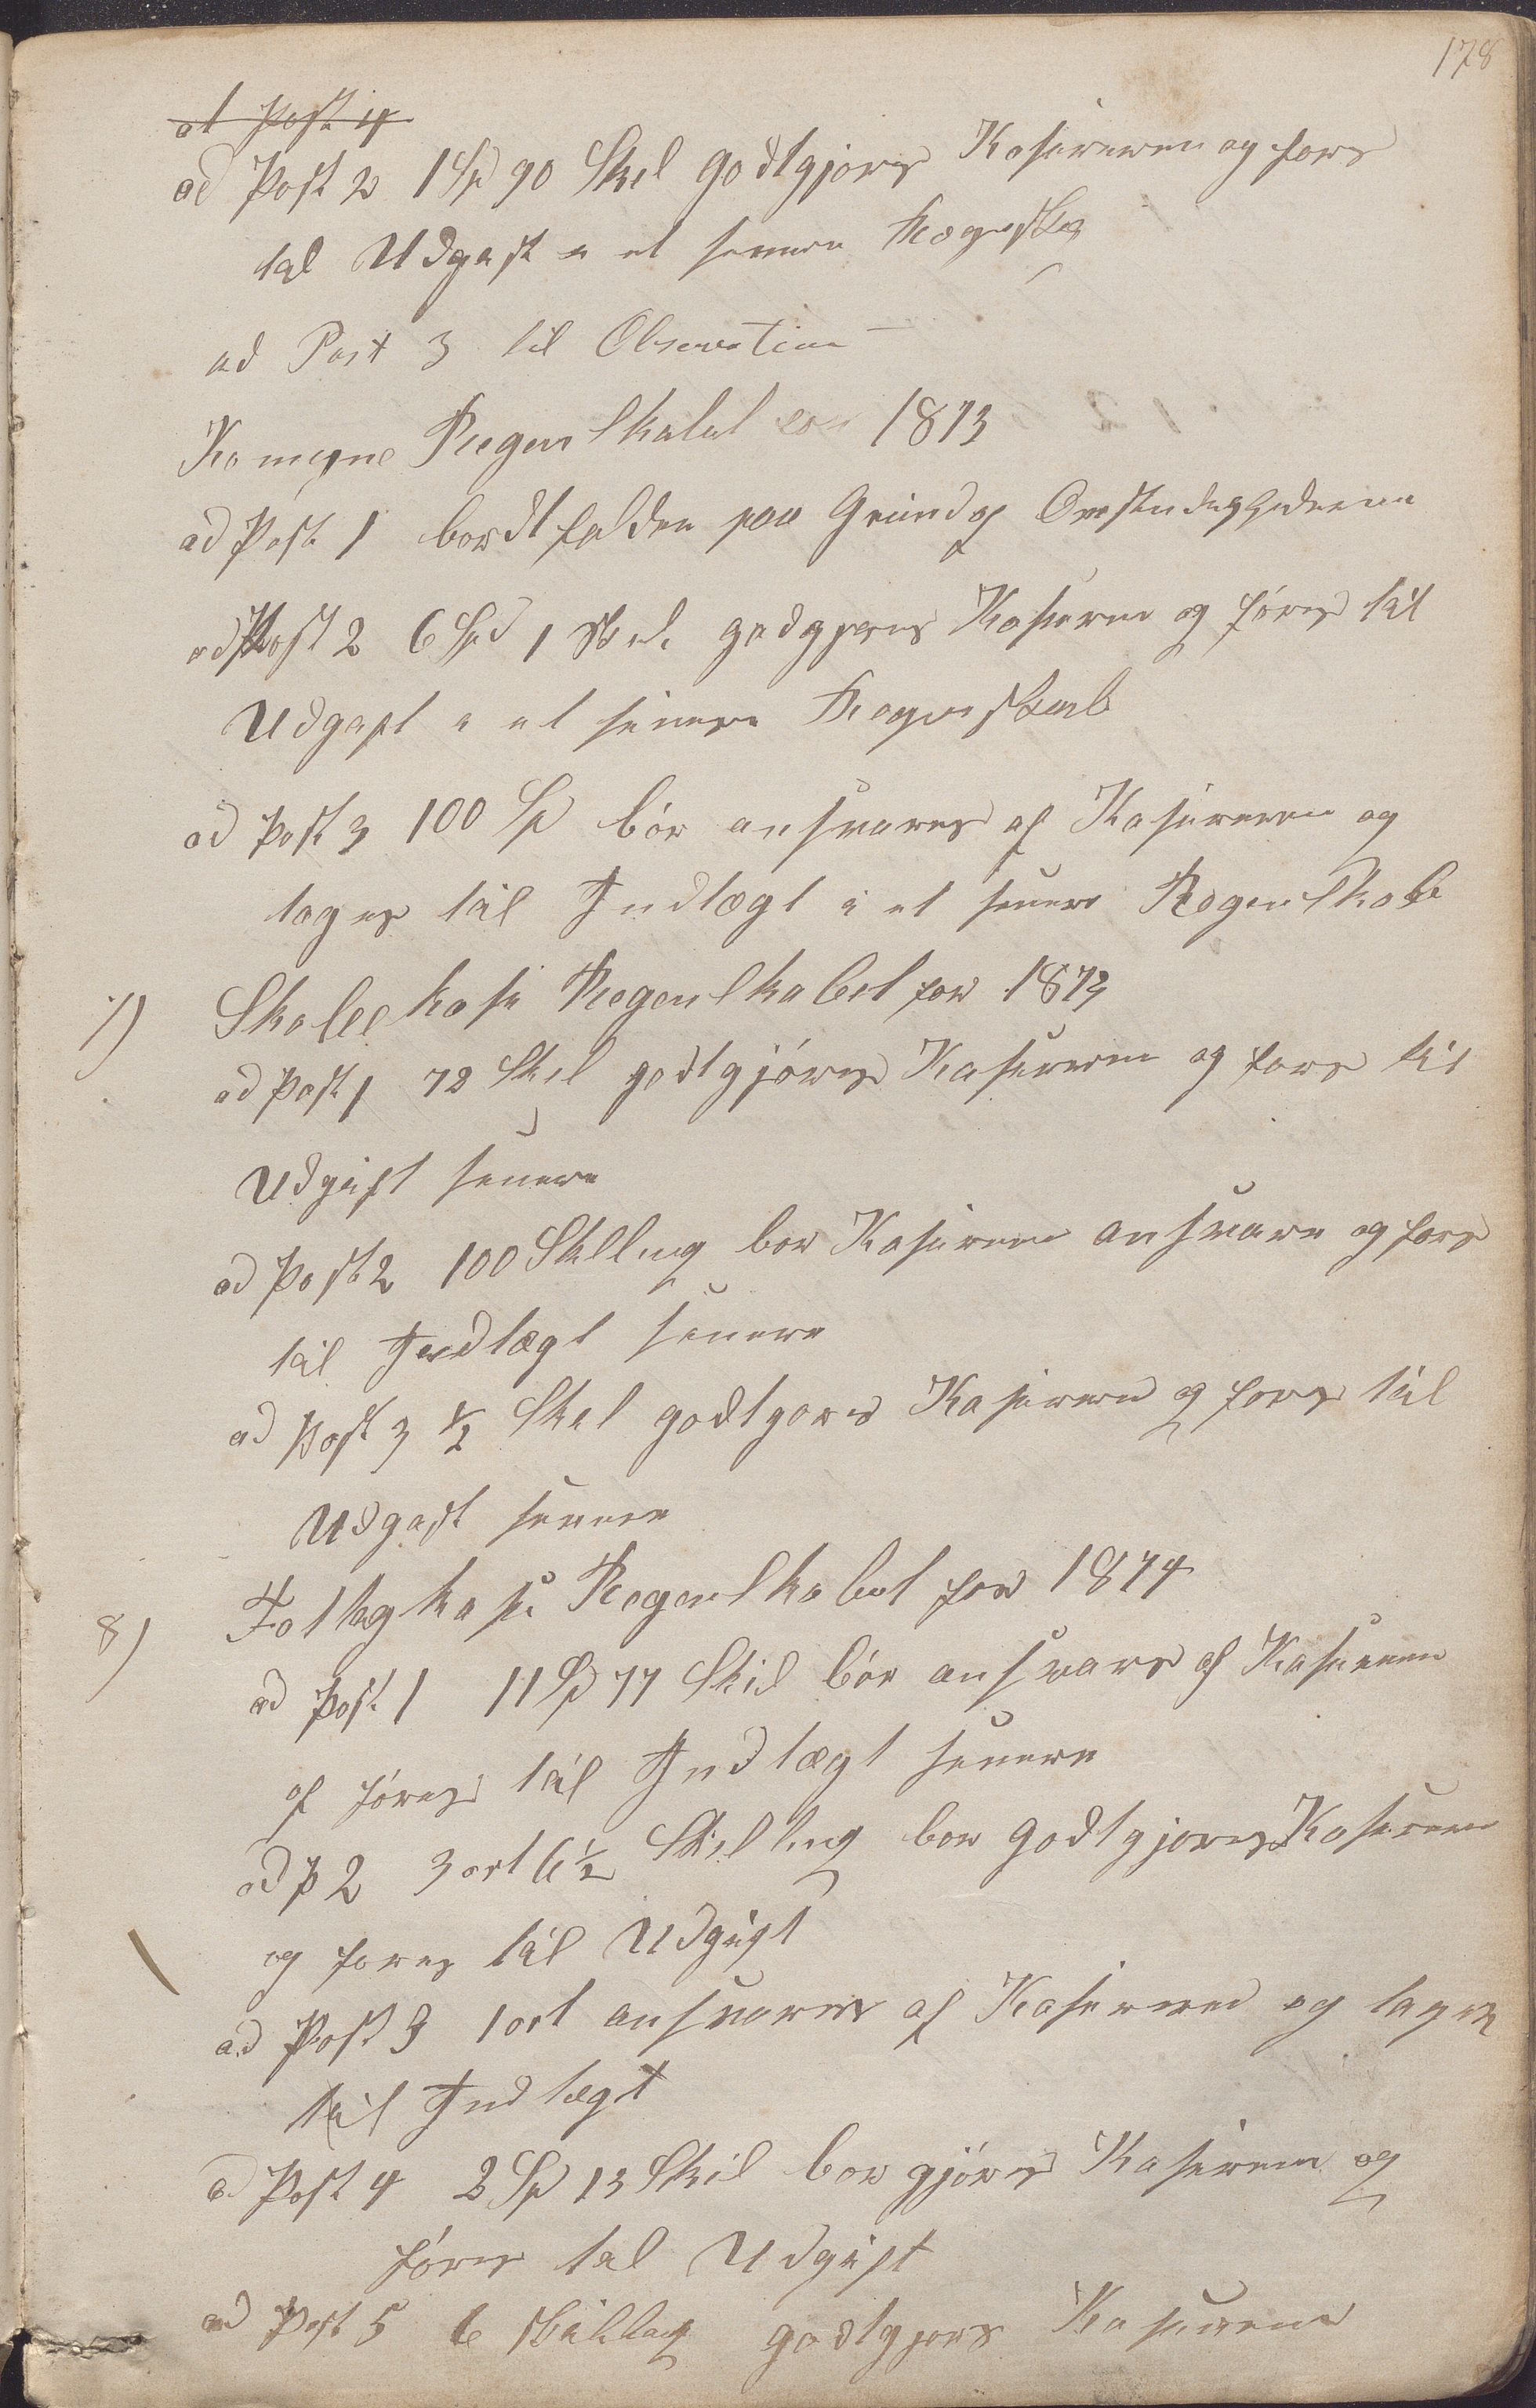 178
ad Post 4
ad Post 2 1 Sp 90 Skil godtgjors Kasereren og fors
tel Udgeft i et senere Regnskab
ad Post 3 til Observation
Komune Regenskabet for 1873
ad Post 1 bordtfalder paa Grund af Omstendighederne
ad Post 2 6 Spd 1 Skil. godgjøres Kasseren og føres til
Udgeft i et senere Regnskab
ad Post 3 100 Sp bør ansvares af Kasereren og
tages til Indtægt i et senere Regenskab
7) Skolekase Regenskabet for 1873
ad Post 1 72 Skil godtgjøres Kasereren og fors til
Udgift senere
ad Post 2 100 Skilling bor Kasereren ansvare og fors
til Indtægt senere
ad Post 3 ½ Skil godtgores Kasereren og fors til
Udgift senere
8) Fattigkase Regenskabet for 1874
ad Post 1 11 Sp 77 Skil bør ansvares af Kasereren
og føres til Indtægt senere
ad P 2 3 ort 6½ Skilling bor godtgjores Kasereren
og fores til Udgift
ad Post 3 1 ort ansvares af Kasereren og tages
til Indtægt
ad Post 4 2 Sp 13 Skil bor gjøres Kasereren og
føres tel Udgift
ad Post 5 6 skilling godtgjors Kasereren